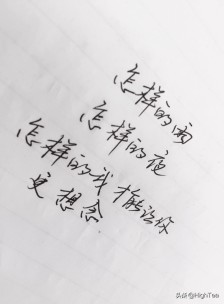 怎样的雨
怎样的夜
怎样的我能让你
更想念
头条 @HighTea